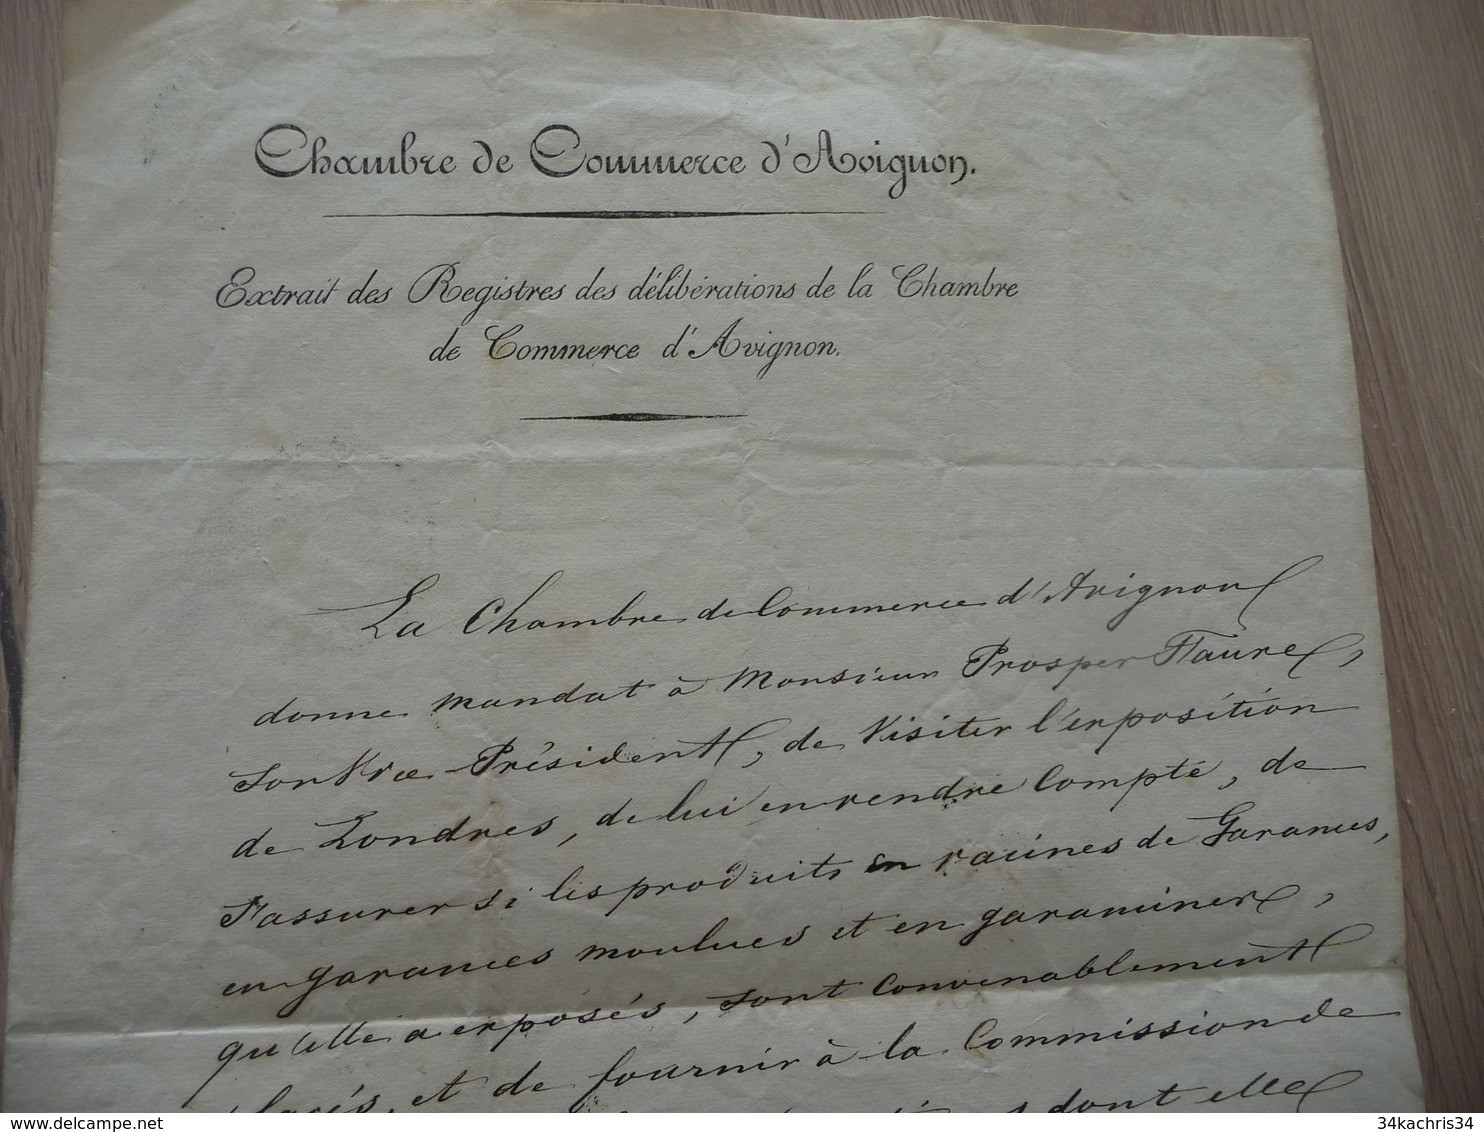 Chambre de Commerce d'Avignon.
Extrait des Registres des délibérations de la Chambre
de Commerce d'Avignon.
La Chambre de Commerce d'Avignon
donne mandat à Monsieur Prosper Faure,
son Vice-Président, de visiter l'exposition
de Londres, de lui en rendre Compte, de
s'assurer si les produits en racines de Garances,
en garances moulues et en garamines,
qu'elle a exposés, sont convenablement
placés, et de fournir à la Commission de
dont elle
34kachris34
34kachris34